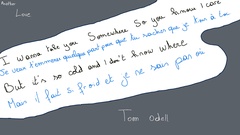 Another
Love
I wanna take you Somewhere So you know I care
Je veux t'emmener quelque part pour que tu saches que je tiens à toi
But it's so cold and I don't know where
Mais il fait si froid et je ne sais pas où
Tom Odell